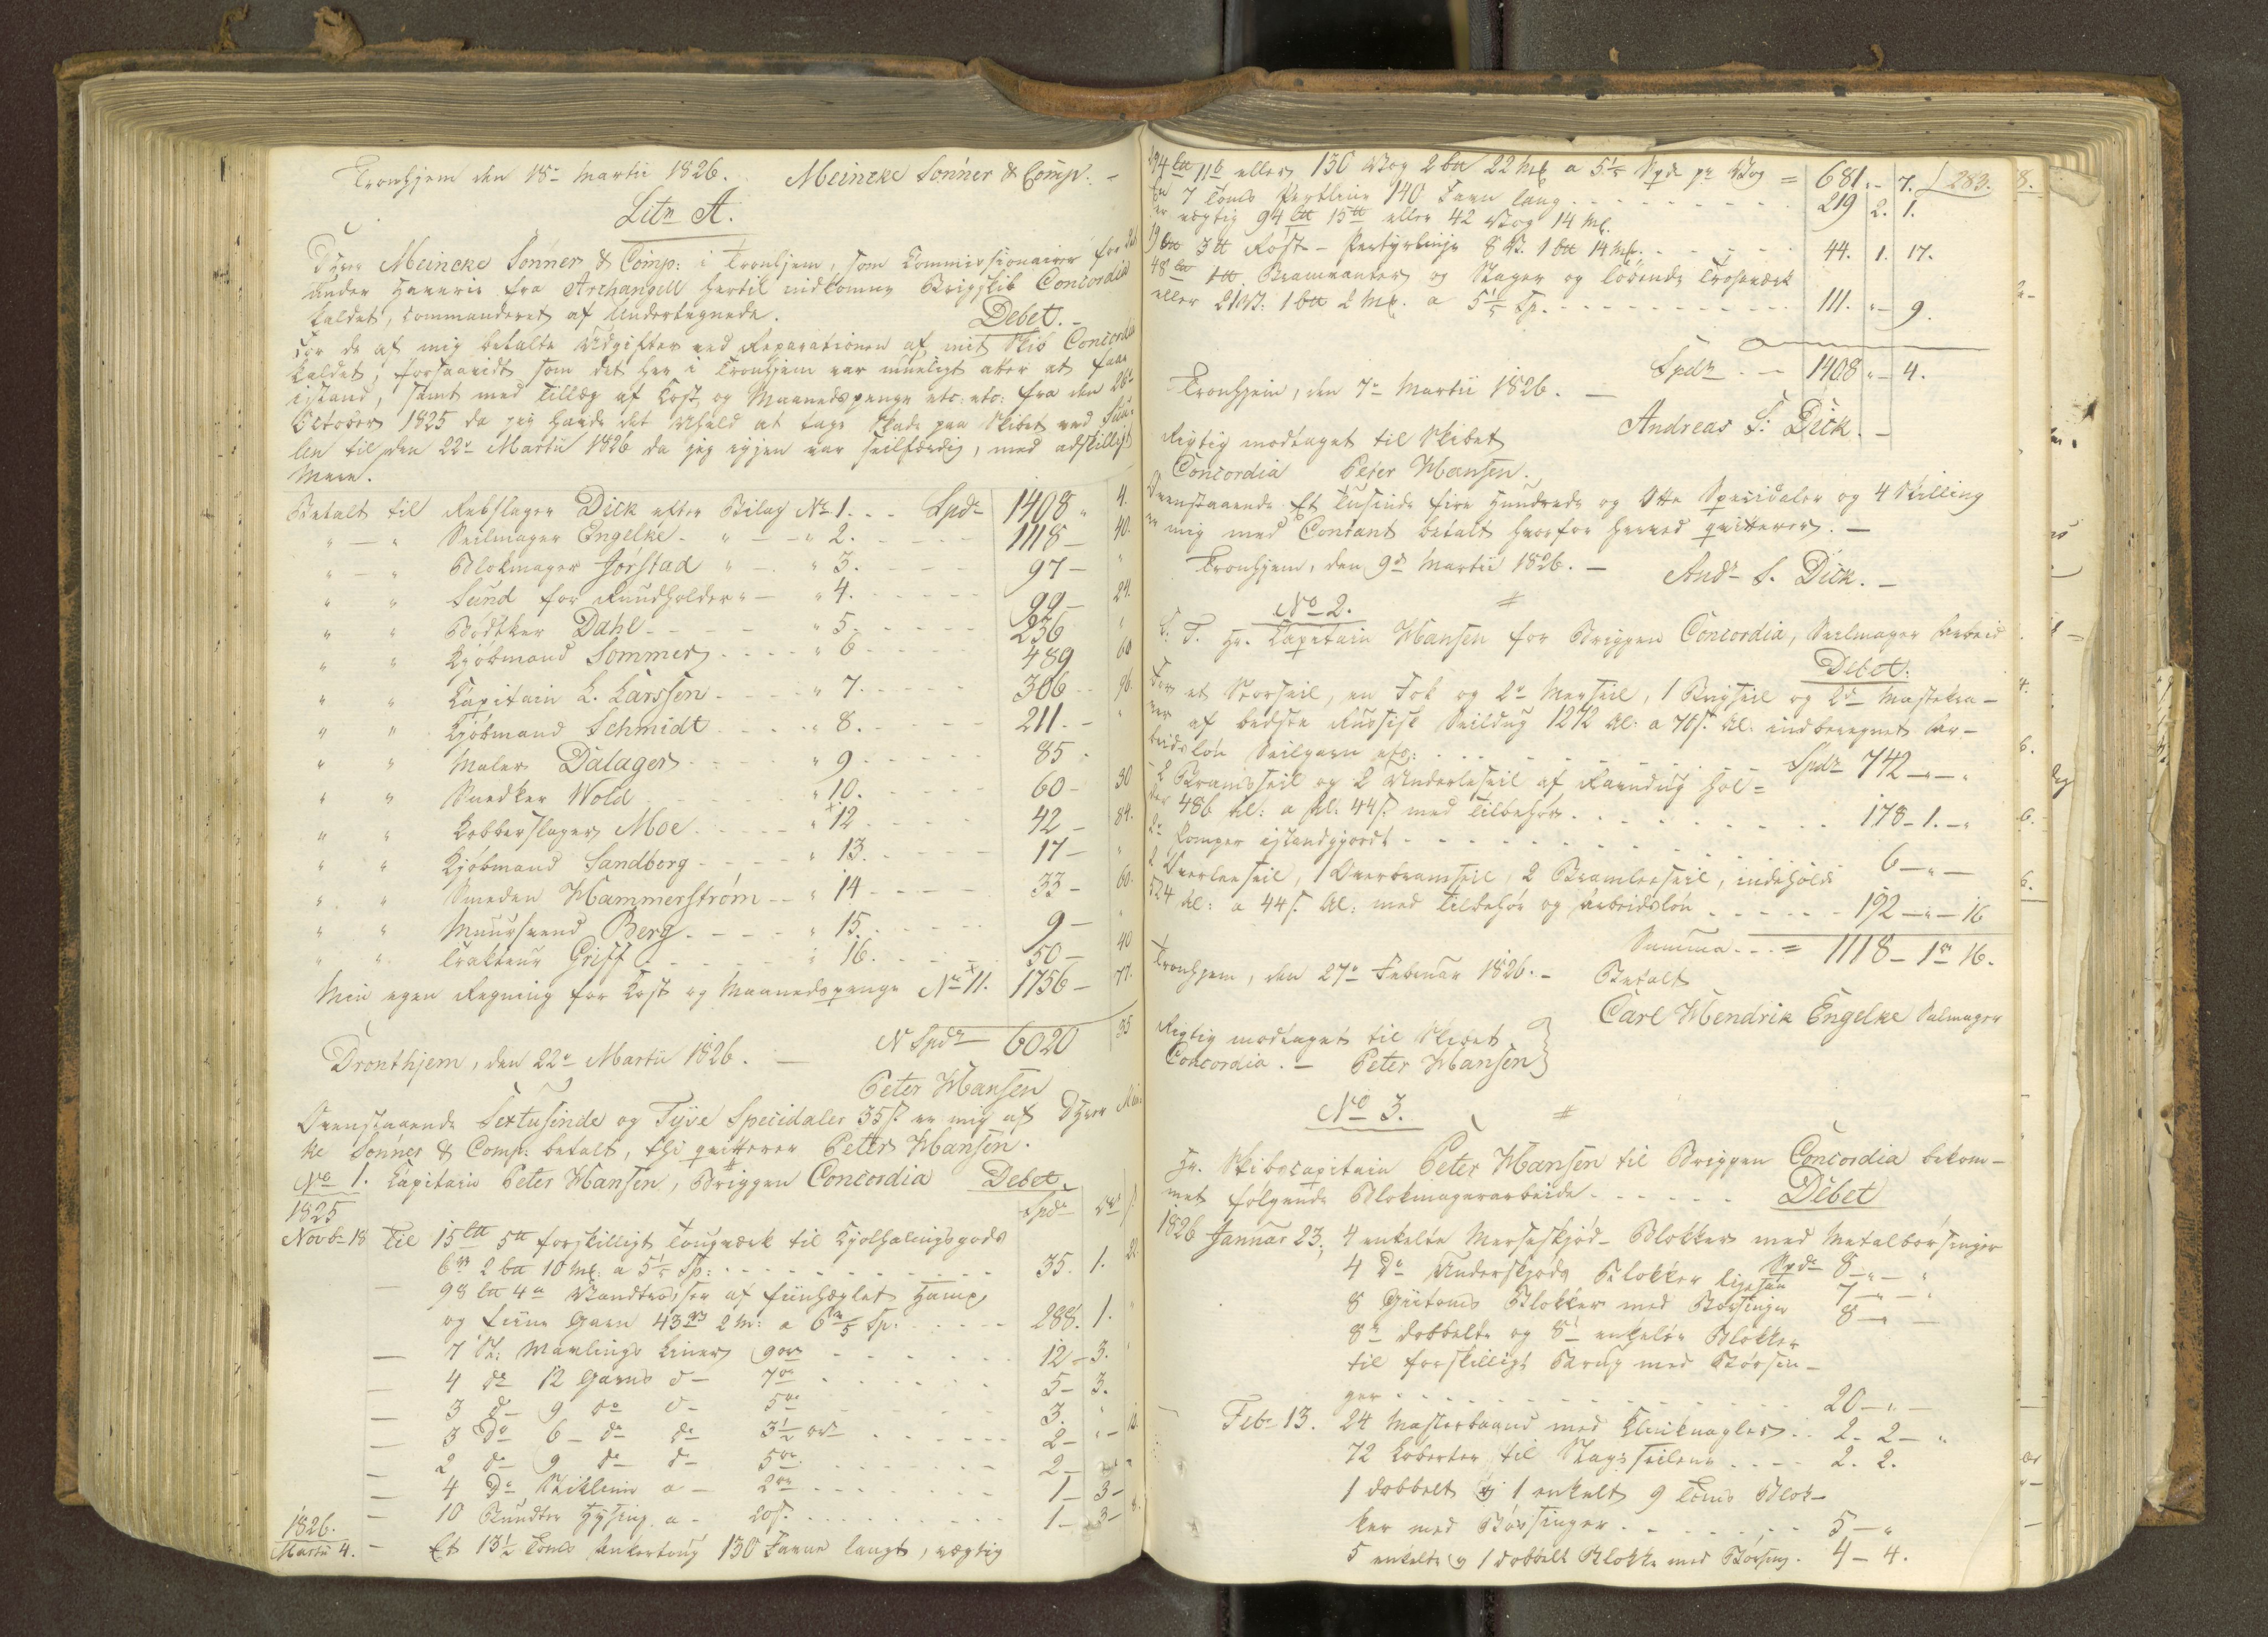 Tronhjem den 18de Martii 1826. Meincke Sönner & Comp: -
Litr A.
DHerr Meincke Sönner & Comp: i Tronhjem, som Commissionairer for det
under Haverie fra Archangell hertil indkomne Brigskib Concordia
kaldet, commanderet af Undertegnede. Debet. -
For de af mig betalte Udgifter ved Reparationen af mit Skib Concordia
kaldet, forsaavidt som det her i Tronhjem var mueligt atter at faae
istand, samt med Tillæg af Kost og Maanedspenge etc: etc: fra den 26de
October 1825 da jeg havde det Uheld at tage Skade paa Skibet ved
til den 22de Martii 1826 da jeg igjen var seilfærdig, med adskilligt
mere.
Betalt til Rebslager Dick efter Bilag No 1. - - Spdr 1408 " 4.
" — " Seilmager Engelke - " — " 2. - - - - 1118 — 40.
" — " Blokmager Jørstad " — " 3. - - - - 97 — "
" " Sund for Ruudholder " — " 4. - - - - 99 — 24.
" " Bødtker Dahl - - - - " 5 - - - - 236 "
" " Kjöbmand Sommer - - - - " 6 - - - - 489 60
" " Capitain L. Larssen - - - - " 7 - - - - 306 - - 96.
" " Kjöbmand Schmidt - - - - " 8. - - - - 211. — "
" " Maler Dalager - - - - " 9 - - - - 85 -
" " Snedker Wold - - - - " 10. - - - - 60 - 30
" " Kobberslager Moe - - - - " 12 - - - - 42 — 84.
" " Kjöbmand Sandborg - - - - " 13. - - - - 17 — "
" " Smeden Hammerström - - " 14 - - - - 33 - 60.
" " Muursvend Berg - - - - " 15. - - - - 9 — "
" " Trakteur Griff - - - - " 16. - - - - 50 — 40
Min egen Regning for Kost og Maanedspenge No 11. 1756 — 77.
N Spdr 6020 35
Dronthjem, den 22de Martii 1826. —
Peter Hansen
Ovenstaaende Sextusinde og Tyve Speciedaler 35 s. er mig af DHerr Mein-
ke Sönner & Comp: betalt, thi qvitterer Peter Hansen.
No 1. Capitain Peter Hansen, Briggen Concordia Debet.
1825 Spdr
Novb. 18 Til 15 5 forskilligt Tougværk til Kjølhalingsgods
2 10 mk: a 5 1/5 Sp: - - - - 35. 1. 22.
— 98 4 af fiinhæglet Hamp
og fiine Garn 43 2 m: a 6 Sp. - - - - 288. 1. "
— 7 St: Mærlings Liner 9 - - - - 12 - 3. "
— 4 do 12 Garns do 7 - - - - 5 - 3.
— 3 do 9 do do 5 - - - - 3. "
— 3 Do 6 do do 3 1/2 - - - - 2 - " - 12
— 2 do 9 do do 5 - - - - 2 — " "
— 4 Do Stiklinie a - 2 - - - - 1 - 3 -
— 10 Bundter Hysing a - 20 s. - - - - 1 - 3 - 8.
1826.
Martii 4. - Et 13 1/2 Toms Ankertoug 130 Favne langt, vægtig
283.
11 eller 130 Vog 2 22 mk a 5 1/5 Spd pr Vog = 681. - 7.
En 7 Toms Pertline 140 Favn lang - - - - 219 2. 1.
er vægtig 94 15 eller 42 Vog 14 mk.
19 3 Röst - 8 V. 1 14 mk. - - - 44. 1. 17.
48 1 Bramvanter og Stager og løbende Trosseværk
eller 21 V: 1 2 mk. a 5 1/5 Sp. - - - - 111. " - 9.
Spdr - - 1408 " - 4.
Tronhjem, den 7de Martii 1826. —
Andreas S: Dick. -
Rigtig modtaget til Skibet
Concordia Peter Hansen.
Ovenstaaende Et Tusinde fire Hundrede og Otte Speciedaler og 4 Skilling
er mig med Contant betalt hvorfor herved qvitteres. -
Tronhjem, den 9de Martii 1826. -
Andr S. Dick. -
No 2.
S. T. Hr. Capitain Hansen for Briggen Concordia, Seilmager Arbeid
Debet.
For et Storseil, en Fok og 2de Merseil, 1 Bugseil og 2de
af bedste Russisk Seildug 1272 Al: a 70 s. Al. indberegnet Ar-
beidsløn Seilgarn etc: - - - - Spdr 742 — " — "
2 Bramseil og 2 Underleseil af Ravndug hol-
der 486 Al: a Al. 44 s. med Tilbehör - - - - 178 - 1. - "
2de istandgjordt - - - - 6 — " —
2 Overleeseil, 1 Overbramseil, 2 Bramleeseil, indeholdt
524 Al: a 44 s. Al: med Tilbehör og Arbeidsløn - - - - 192 — " — 16
Summa - - - = 1118 - 1 " 16.
Tronhjem, den 27de Februar 1826. - Betalt
Carl Hendrik Engelke Salmager
Rigtig modtaget til Skibet
Concordia. - Peter Hansen
No 3.
Hr. Skibscapitain Peter Hansen til Briggen Concordia bekom-
met følgende Blokmagerarbeide - - - - - Debet
1826 Januar 23. 4 enkelte Merseskjöd-Blokker med Metalbøsinger
Spdr 8 - " - "
4 Do Underskjöds Blokker ligesaa 7 - " - "
8 Blokker med Børsinger 8 - " -
8te dobbelte og 8 enkelte Blokker
til forskilligt Brug med Börsin-
ger - - - - 20 — " —
Febr 13. 24 Masterbaand med Klinknagler. - 2. 2 - "
72 til Stagsseilene - - - - 2. 2.
1 dobbelt og 1 enkelt 9 Toms Blok-
ker med Börsinger - - - - 5 — "
5 enkelte og 1 dobbelt Blokke med Börsing. 4 - 4.